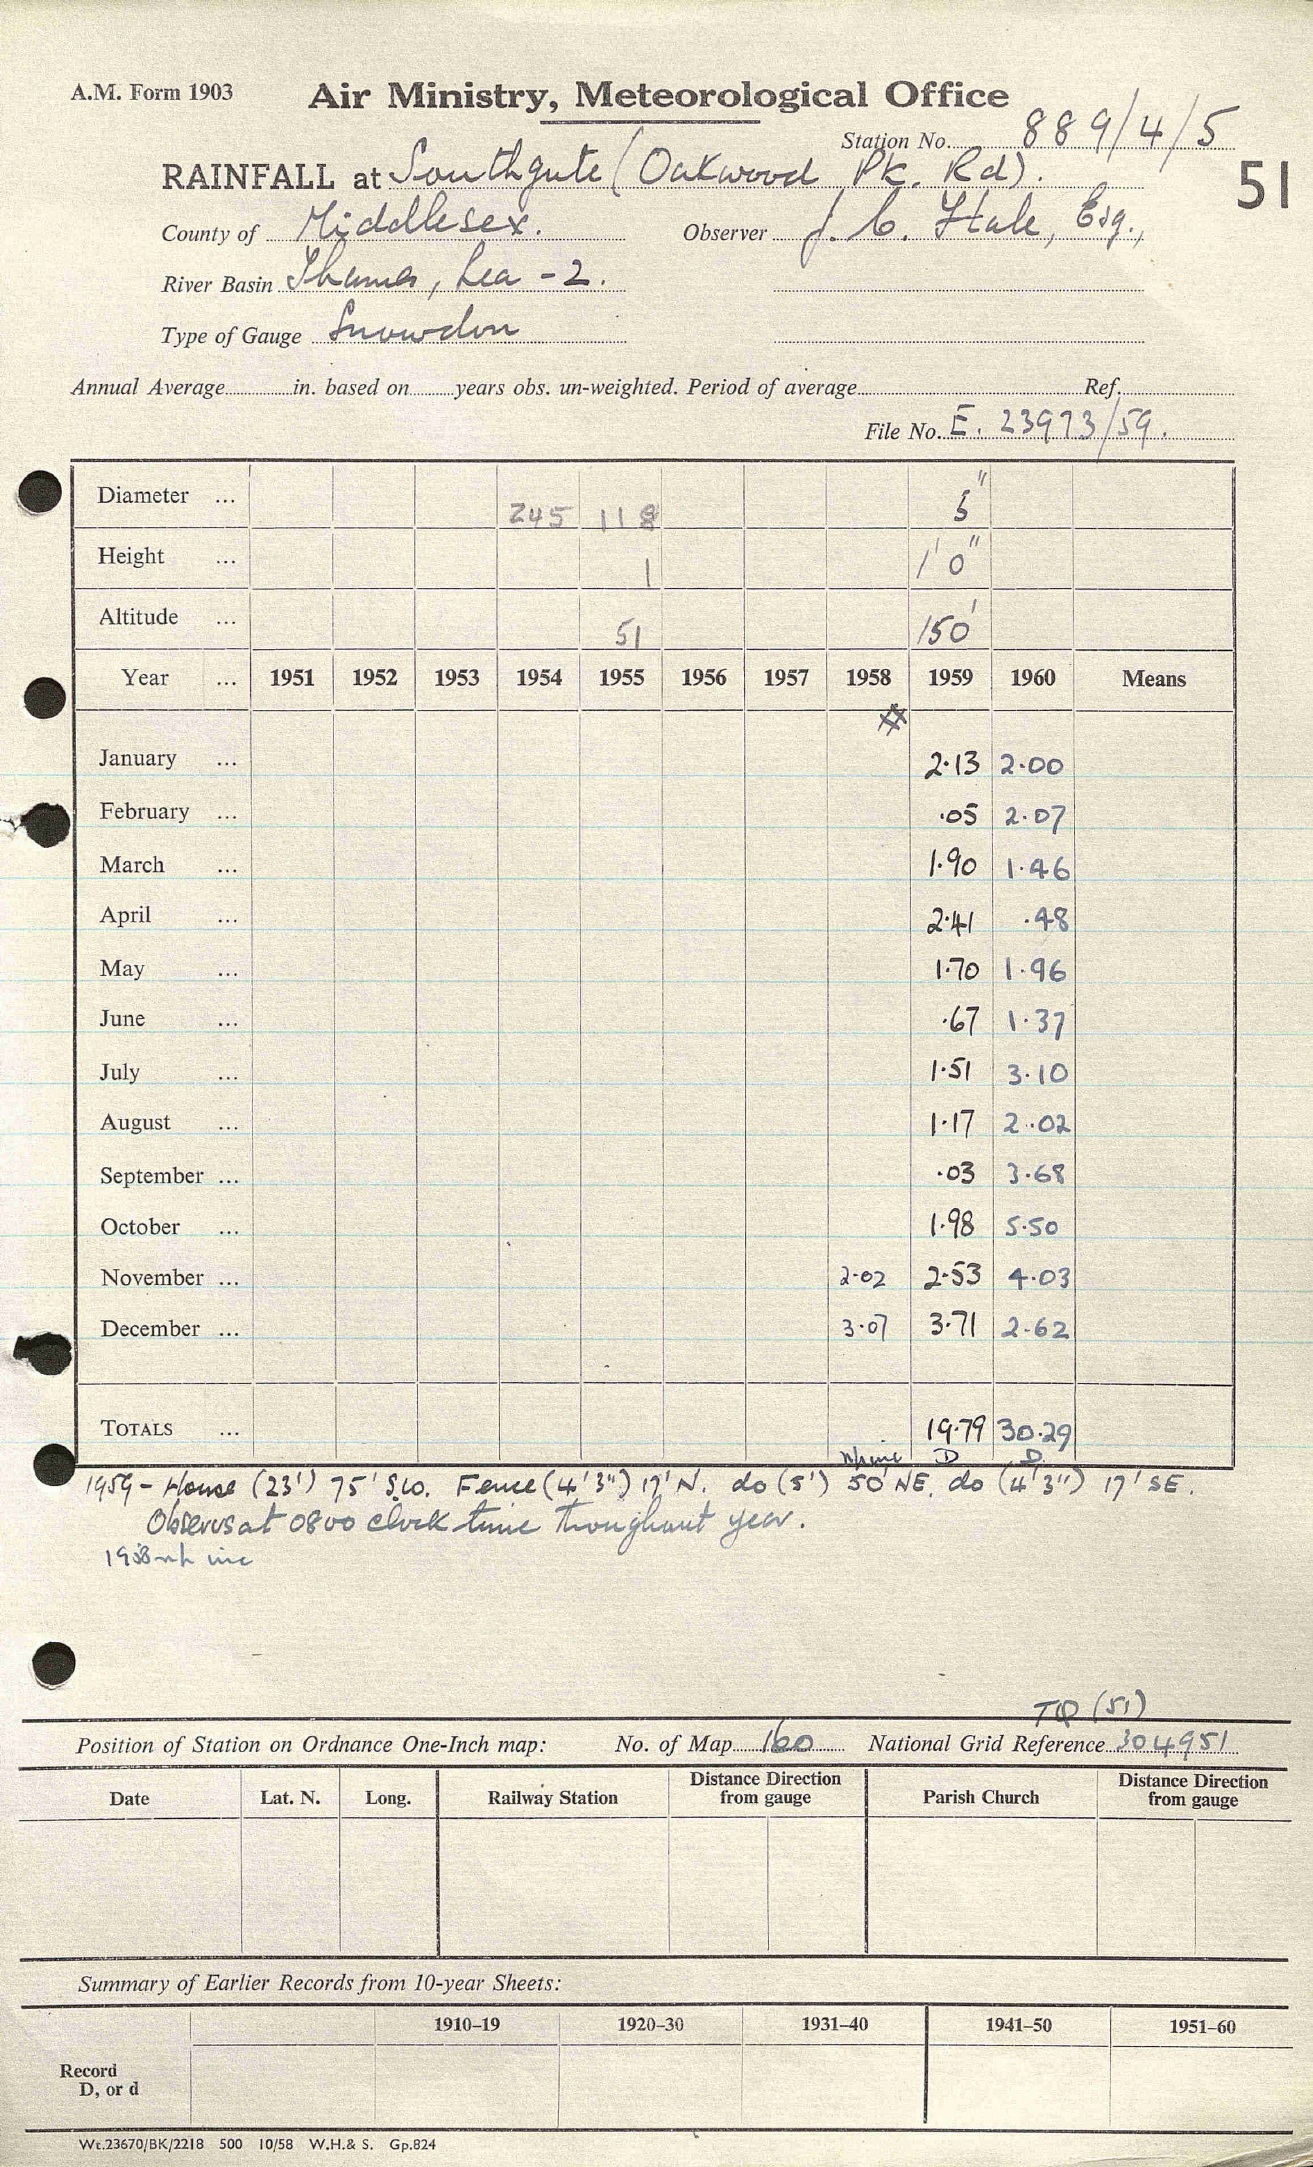 A.M. Form 1903 Air Ministry, Meteorological Office
Station No. 889/4/5
RAINFALL at Southgate (Oakwood Pk. Rd). 51
County of Middlesex. Observer J. C. Hale, Esq.,
River Basin Thames, Lea - 2.
Type of Gauge Snowdon
Annual Average in. based on years obs. un-weighted. Period of average Ref.
File No. E. 23973/59.
Diameter ... 245 118 5"
Height ... 1 1' 0"
Altitude ... 51 150'
Year ... 1951 1952 1953 1954 1955 1956 1957 1958 1959 1960 Means
January ... 2.13 2.00
February ... .05 2.07
March ... 1.90 1.46
April ... 2.41 .48
May ... 1.70 1.96
June ... .67 1.37
July ... 1.51 3.10
August ... 1.17 2.02
September ... .03 3.68
October ... 1.98 5.50
November ... 2.02 2.53 4.03
December ... 3.07 3.71 2.62
TOTALS ... 19.79 30.29
D D
1959 - House (23') 75' SW. Fence (4' 3") 17' N. do (5') 50' NE. do (4' 3") 17' SE.
Observes at 0800 clock time throughout year.
1958 inc
TQ (51)
Position of Station on Ordnance One-Inch map: No. of Map 160 National Grid Reference 304951
Date Lat. N. Long. Railway Station Distance Direction from gauge Parish Church Distance Direction from gauge
Summary of Earlier Records from 10-year Sheets:
1910–19 1920–30 1931–40 1941–50 1951–60
Record
D, or d
Wt.23670/BK/2218 500 10/58 W.H.& S. Gp.824